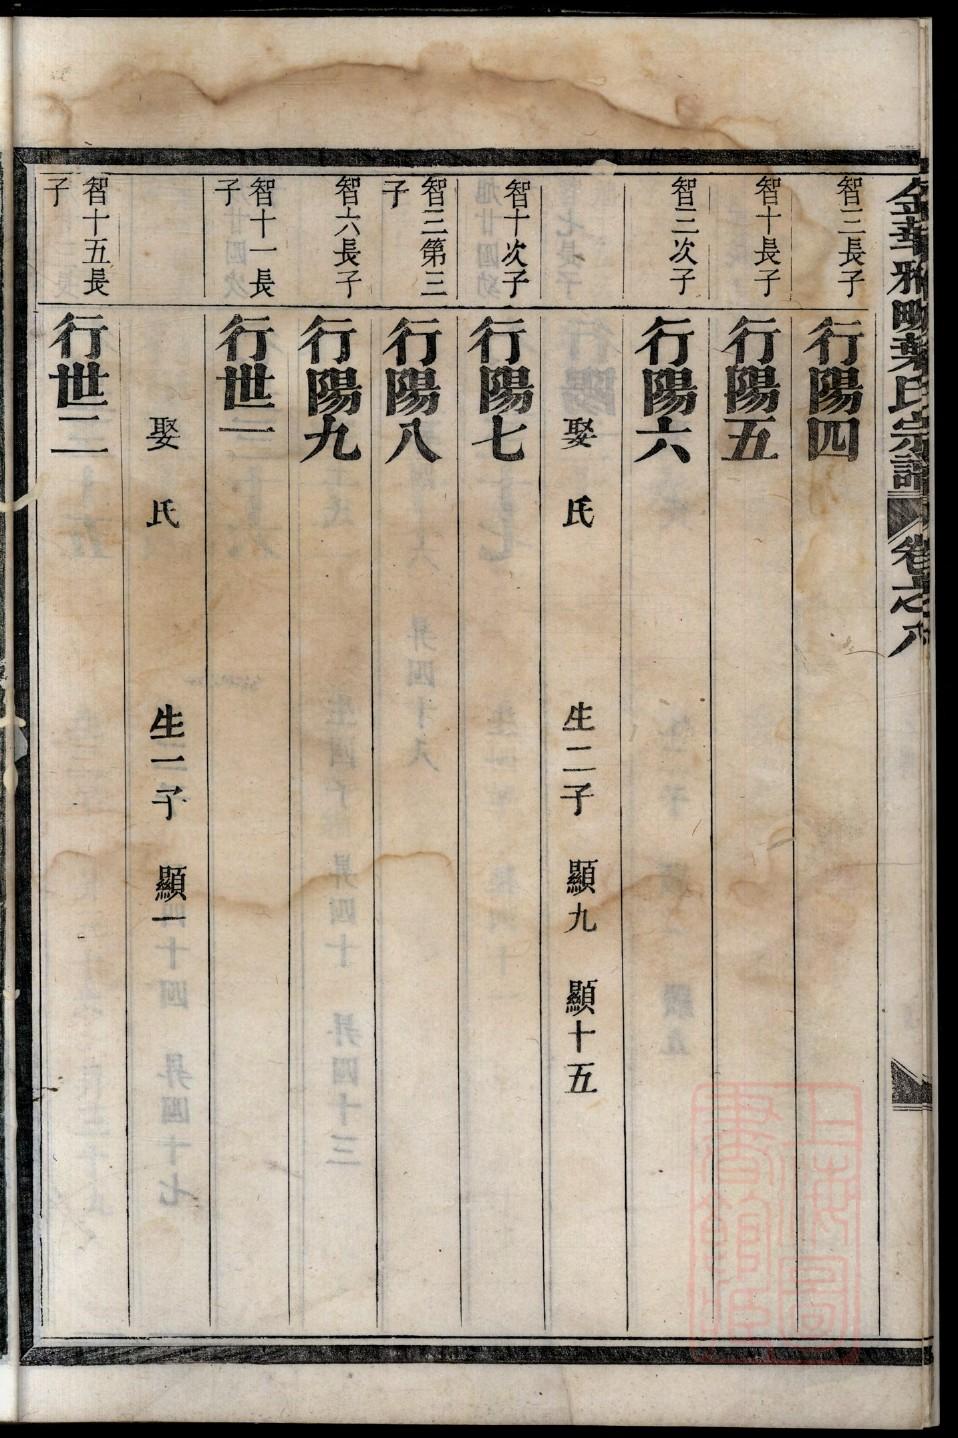 金華雅畈葉氏宗譜 卷之六
智三長子
行陽四
智十長子
行陽五
智三次子
行陽六
娶 氏 生二子 顯九 顯十五
智十次子
行陽七
智三第三
子
行陽八
智六長子
行陽九
智十一長
子
行世一
娶 氏 生一子 顯一
智十五長
子
行世二
上海圖
書館藏